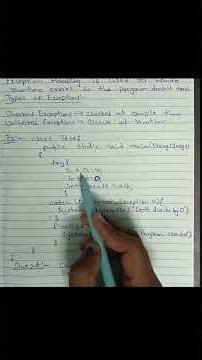 Exception Handling is used to handle
runtime errors so the program doesn't crash
Types of Exception:
Checked Exception → checked at compile time
Unchecked Exception → Occur at runtime
Ex:- class Test {
public static void main(String[] args)
{
try {
int a = 10;
int b = 0;
int result = a/b;
}
catch (ArithmeticException e) {
System.out.println("Can't divide by 0");
}
finally {
Program ended");
}
}
Output:-